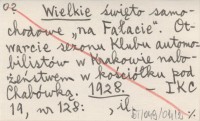 02
Wielkie święto samo-
chodowe „na Fałacie". Ot-
warcie sezonu Klubu automo-
bilistów w Krakowie nabo-
żeństwem w kościółku pod
Chabówką. 1928. - IKC
19, nr 128: , il.